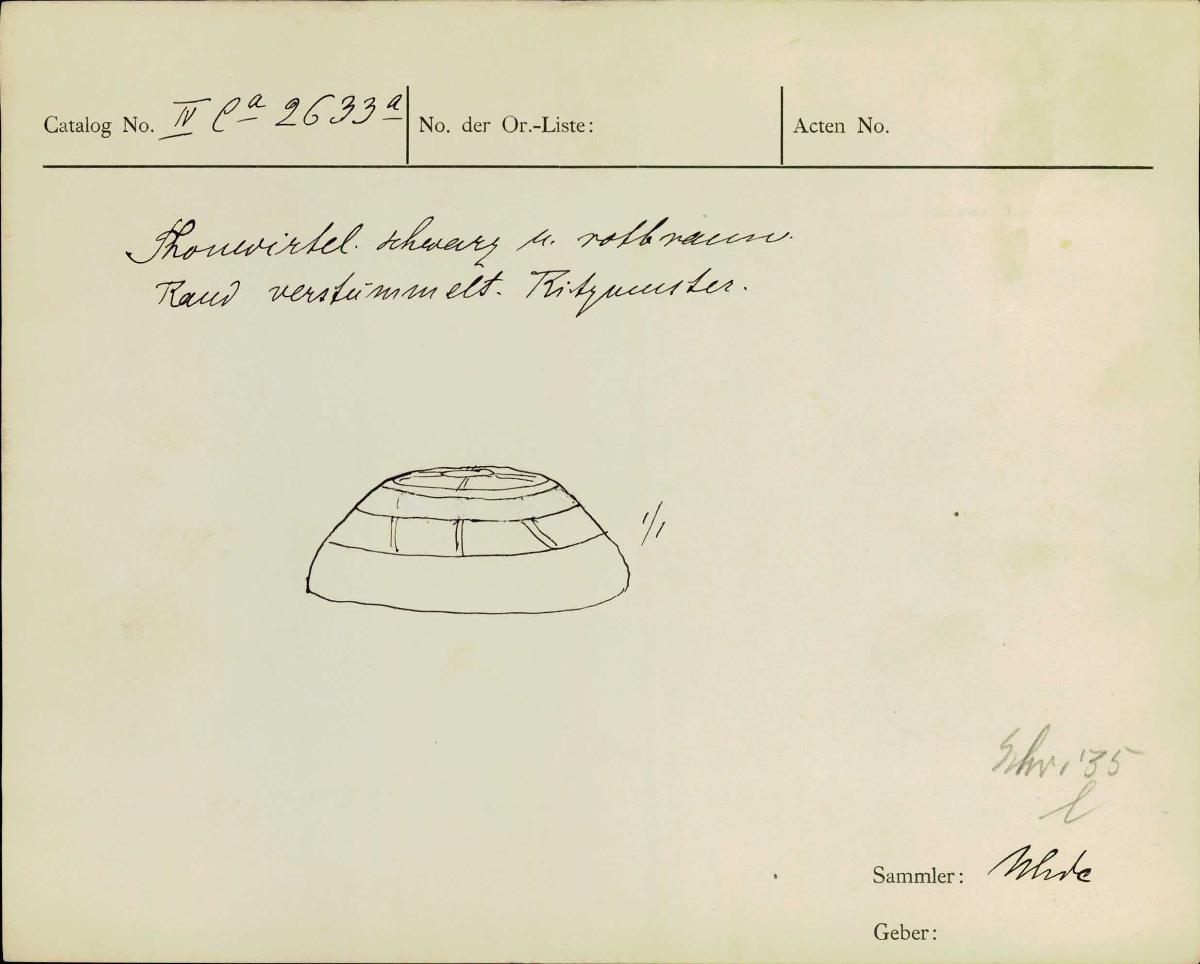 Catalog No. IV Ca 2633a
No. der Or.-Liste:
Acten No.
Thonwirtel. schwarz u. rotbraun.
Rand verstümmelt. Ritzmuster.
1/1
Schr. '35
l
Sammler: Uhde
Geber: